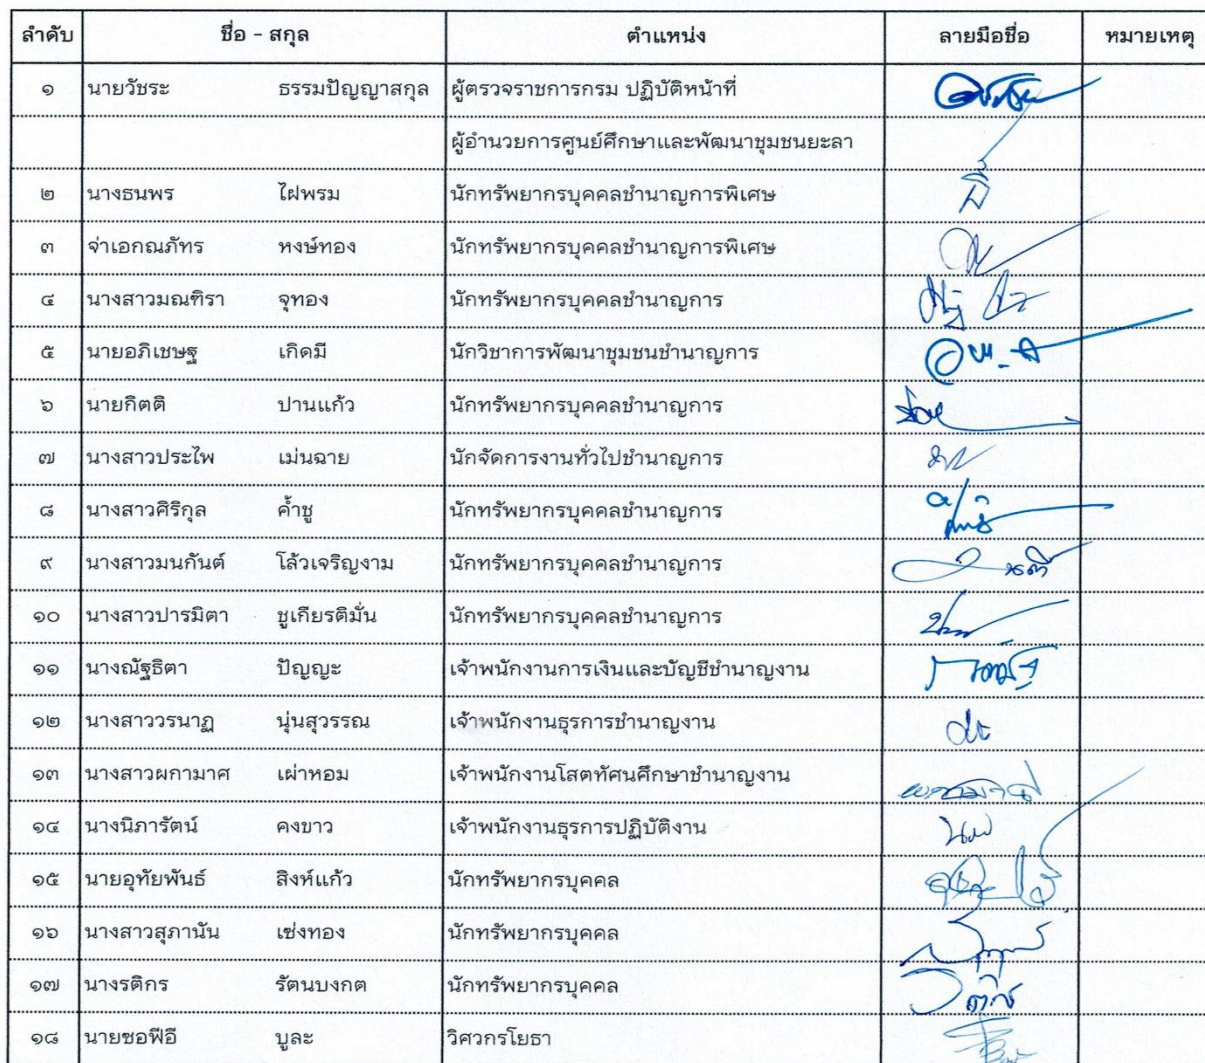 ลำดับ ชื่อ - สกุล ตำแหน่ง ลายมือชื่อ หมายเหตุ
๑ นายวัชระ ธรรมปัญญาสกุล ผู้ตรวจราชการกรม ปฏิบัติหน้าที่
ผู้อำนวยการศูนย์ศึกษาและพัฒนาชุมชนยะลา
๒ นางธนพร ไฝพรม นักทรัพยากรบุคคลชำนาญการพิเศษ
๓ จ่าเอกณภัทร หงษ์ทอง นักทรัพยากรบุคคลชำนาญการพิเศษ
๔ นางสาวมณฑิรา จุทอง นักทรัพยากรบุคคลชำนาญการ
๕ นายอภิเชษฐ เกิดมี นักวิชาการพัฒนาชุมชนชำนาญการ
๖ นายกิตติ ปานแก้ว นักทรัพยากรบุคคลชำนาญการ
๗ นางสาวประไพ เม่นฉาย นักจัดการงานทั่วไปชำนาญการ
๘ นางสาวศิริกุล ค้ำชู นักทรัพยากรบุคคลชำนาญการ
๙ นางสาวมนกันต์ โล้วเจริญงาม นักทรัพยากรบุคคลชำนาญการ
๑๐ นางสาวปารมิตา ชูเกียรติมั่น นักทรัพยากรบุคคลชำนาญการ
๑๑ นางณัฐธิตา ปัญญะ เจ้าพนักงานการเงินและบัญชีชำนาญงาน
๑๒ นางสาววรนาฏ นุ่นสุวรรณ เจ้าพนักงานธุรการชำนาญงาน
๑๓ นางสาวผกามาศ เผ่าหอม เจ้าพนักงานโสตทัศนศึกษาชำนาญงาน
๑๔ นางนิภารัตน์ คงขาว เจ้าพนักงานธุรการปฏิบัติงาน
๑๕ นายอุทัยพันธ์ สิงห์แก้ว นักทรัพยากรบุคคล
๑๖ นางสาวสุภานัน เซ่งทอง นักทรัพยากรบุคคล
๑๗ นางรติกร รัตนบงกต นักทรัพยากรบุคคล
๑๘ นายซอฟีอี บูละ วิศวกรโยธา